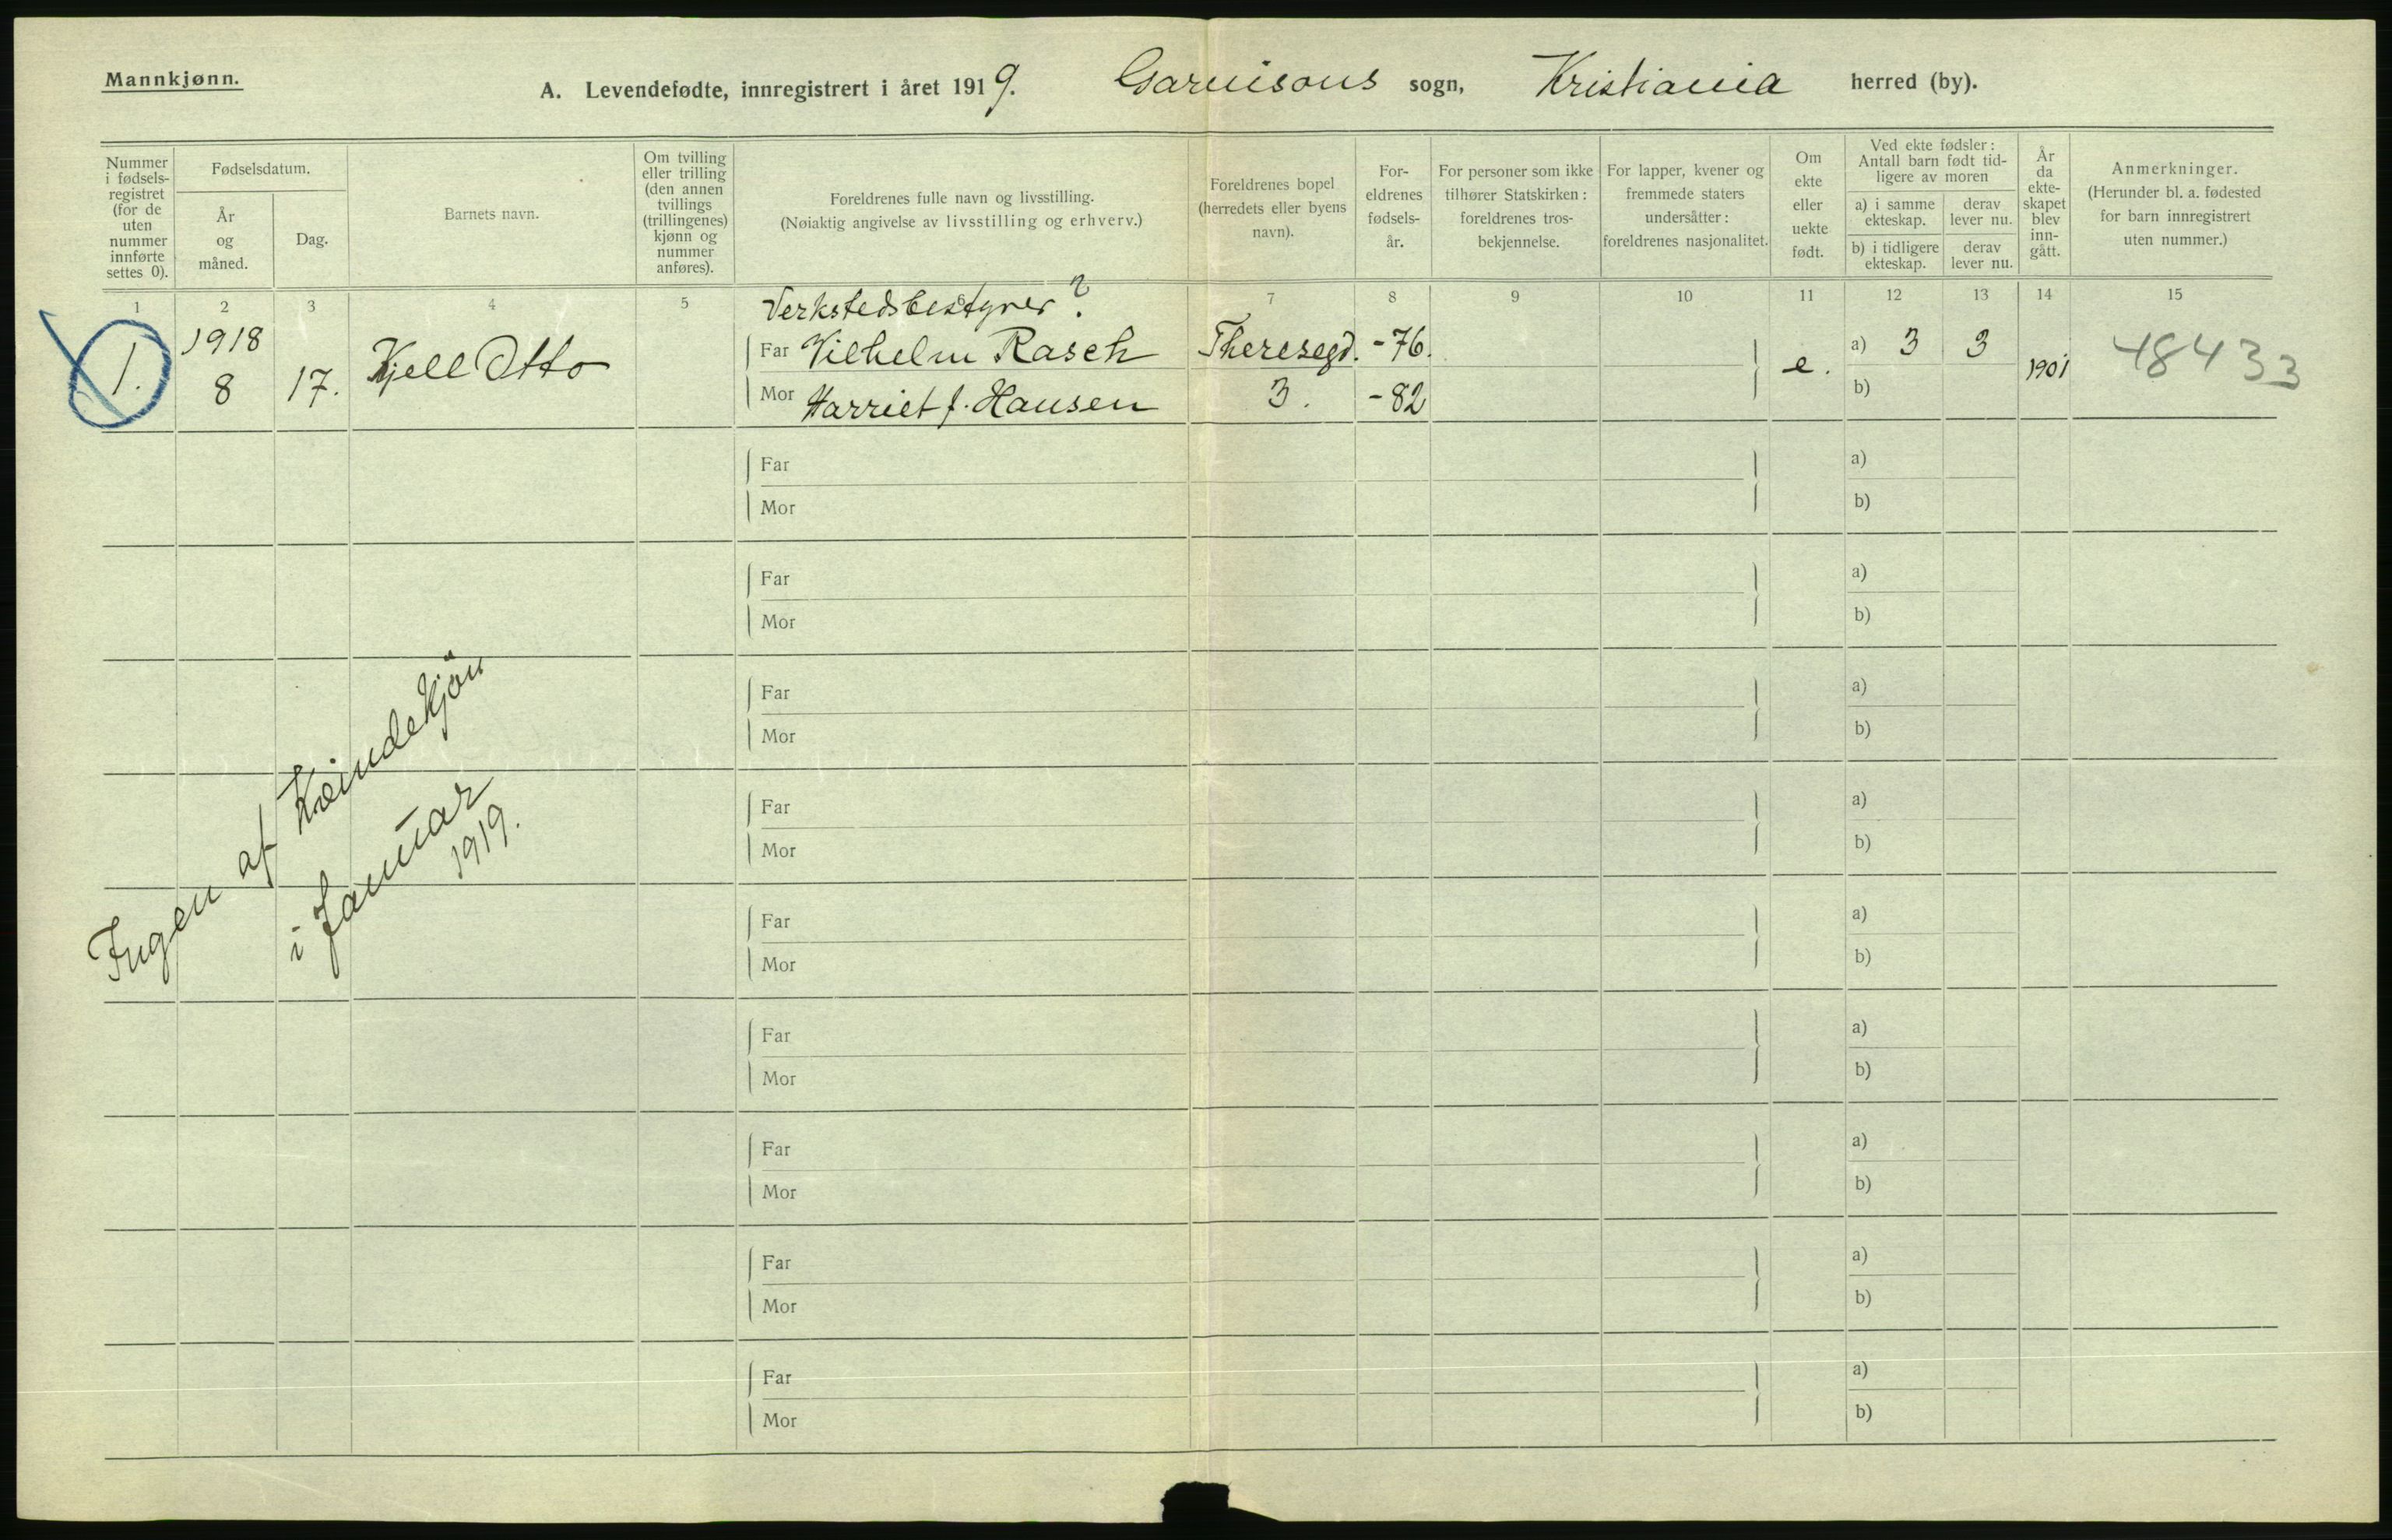 Mannkjønn.
A. Levendefødte, innregistrert i året 1919. Garnisons sogn, Kristiania herred (by).
Nummer i fødselsregistret (for de uten nummer innførte settes 0).
Fødselsdatum.
År og måned.
Dag.
Barnets navn.
Om tvilling eller trilling (den annen tvillings (trillingenes) kjønn og nummer anføres).
Foreldrenes fulle navn og livsstilling.
(Nøiaktig angivelse av livsstilling og erhverv.)
Foreldrenes bopel (herredets eller byens navn).
Foreldrenes fødselsår.
For personer som ikke tilhører Statskirken: foreldrenes trosbekjennelse.
For lapper, kvener og fremmede staters undersåtter: foreldrenes nasjonalitet.
Om ekte eller uekte født.
Ved ekte fødsler: Antall barn født tidligere av moren
a) i samme ekteskap.
derav lever nu.
b) i tidligere ekteskap.
derav lever nu.
År da ekteskapet blev inngått.
Anmerkninger.
(Herunder bl. a. fødested for barn innregistrert uten nummer.)
1 2 3 4 5 6 7 8 9 10 11 12 13 14 15
Verkstedsbestyrer ?
1. 1918 8 17. Kjell Otto
Far Vilhelm Rasch Theresegd. -76. a) 3 3
Mor Harriet f. Hansen 3. -82 e. b) 1901 48433
Far a)
Mor b)
Far a)
Mor b)
Far a)
Mor b)
Far a)
Mor b)
Far a)
Mor b)
Far a)
Mor b)
Far a)
Mor b)
Far a)
Mor b)
Far a)
Mor b)
Ingen af Kvindekjön
i Januar
1919.